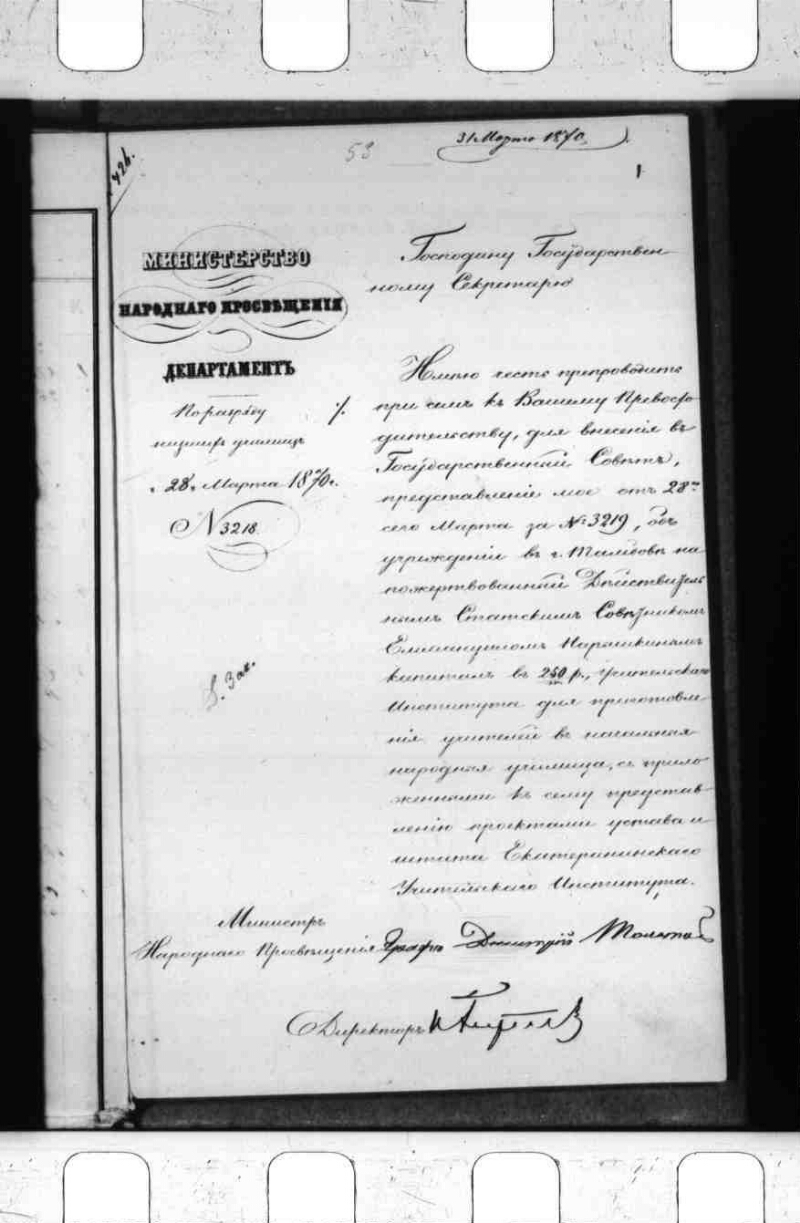 31 Марта 1870.
53
1
426.
МИНИСТЕРСТВО
НАРОДНАГО ПРОСВѢЩЕНІЯ
ДЕПАРТАМЕНТЪ
По разряду
низшихъ училищъ
28 Марта 1870 г.
N 3218
Господину Государствен-
ному Секретарю
Имѣю честь препроводить
при семъ къ Вашему Превосхо-
дительству, для внесенія въ
Государственный Совѣтъ,
представленіе мое отъ 28го
сего Марта за № 3219, объ
учрежденіи въ г. Тамбовѣ на
пожертвованный Дѣйствитель-
нымъ Статскимъ Совѣтникомъ
Нарышкинымъ
капиталъ въ 250 р., Учительскаго
Института для приготовле-
нія учителей въ начальныя
народныя училища, съ прило-
женными къ сему представ-
ленію проектами устава и
штата Екатерининскаго
Учительскаго Института.
Министръ
Народнаго Просвѣщенія Графъ Дмитрій Толстой
Директоръ